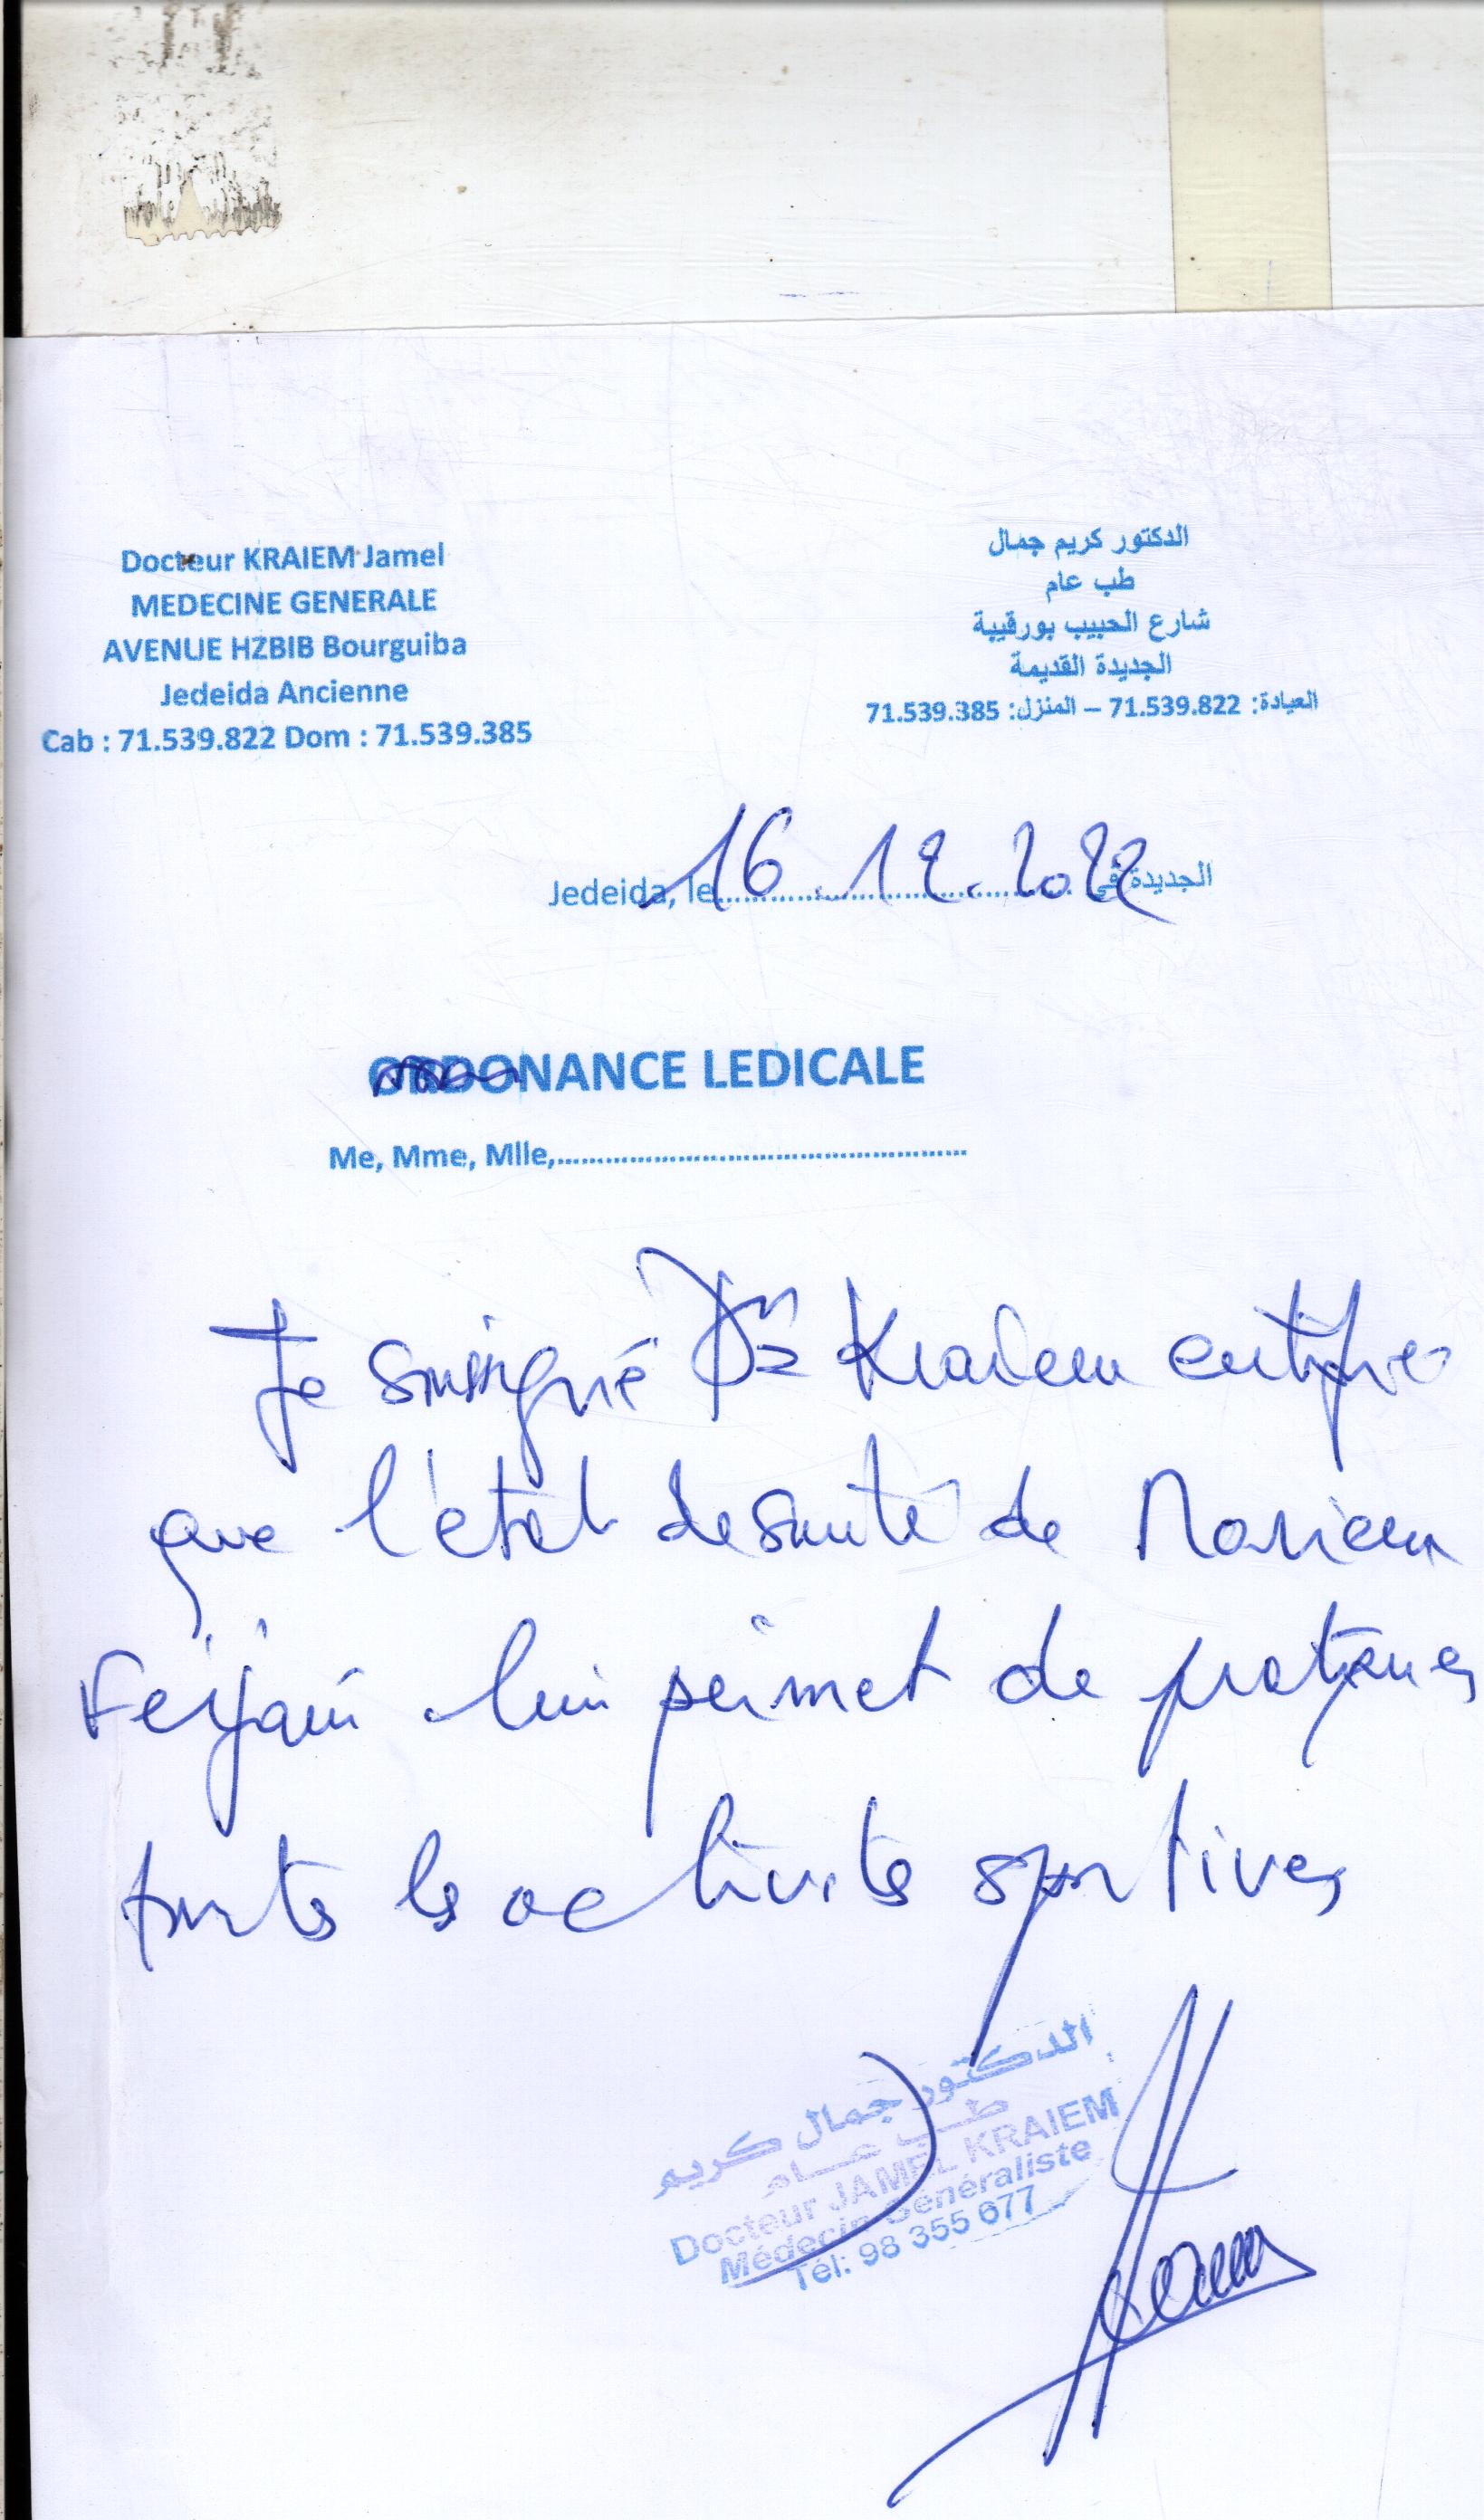 Docteur KRAIEM Jamel
MEDECINE GENERALE
AVENUE HZBIB Bourguiba
Jedeida Ancienne
Cab : 71.539.822 Dom : 71.539.385
الدكتور كريم جمال
طب عام
شارع الحبيب بورقيبة
الجديدة القديمة
العيادة: 71.539.822 – المنزل: 71.539.385
Jedeida, le 16.12.2022 الجديدة في
ORDONANCE LEDICALE
Me, Mme, Mlle,
Je soussigné Dr Kraiem certifie
que l'état de santé de Mariem
Ferjani lui permet de pratiquer
toutes les activités sportives
الدكتور جمال كريم
طب عام
Docteur JAMEL KRAIEM
Médecin Généraliste
Tél: 98 355 677